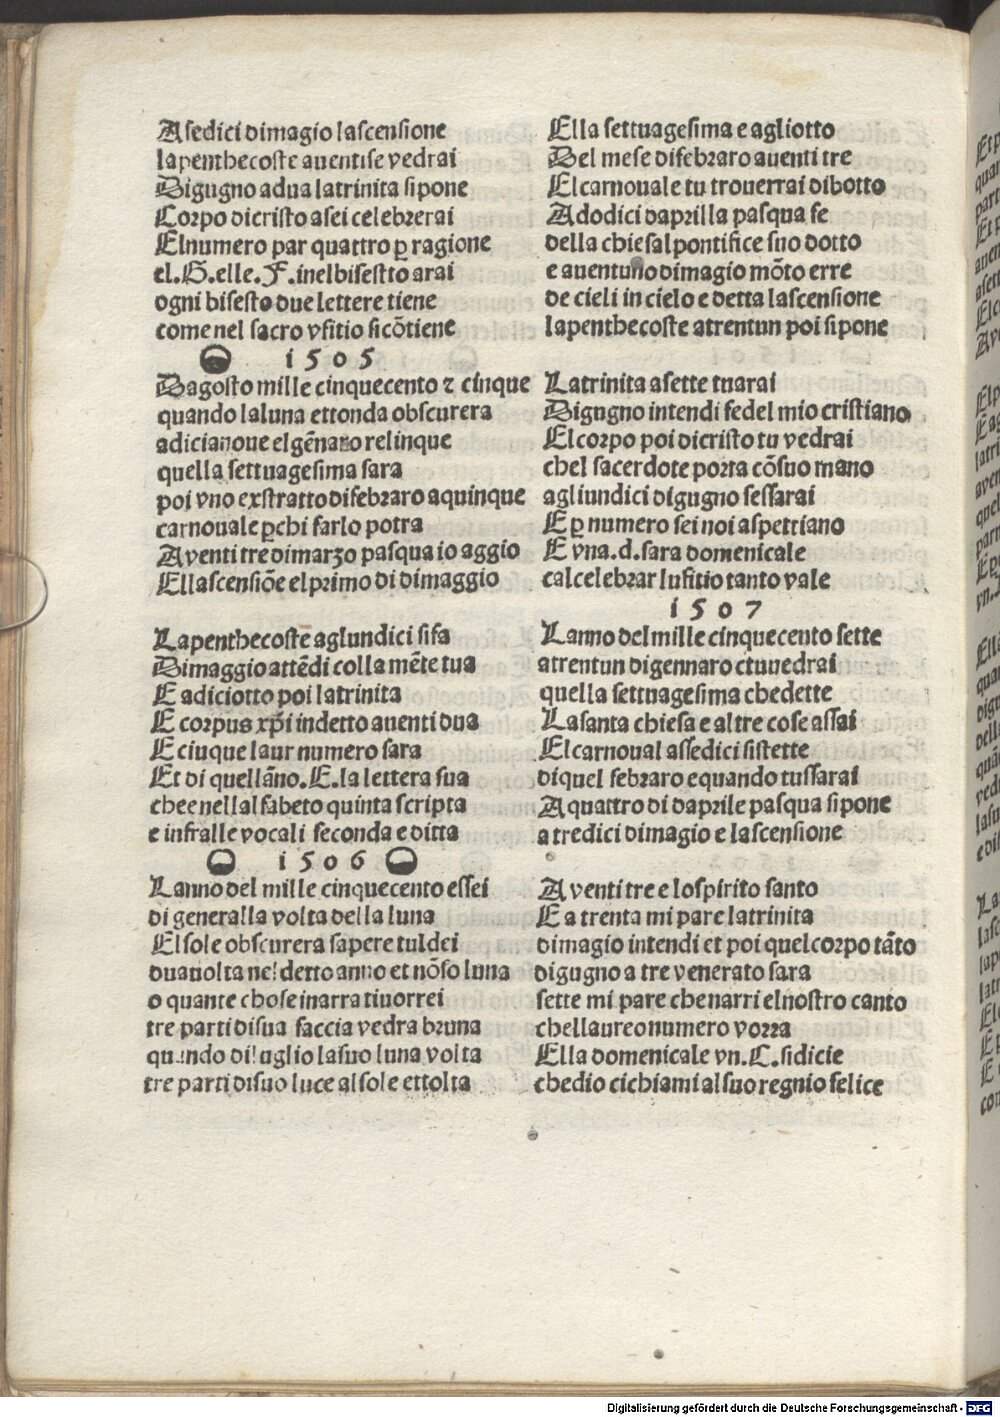 A sedici di magio lascensione
la penthecoste a uentise vedrai
Di gugno a dua la trinita si pone
Corpo di cristo a sei celebrerai
El numero par quattro ꝑ ragione
el. G. elle. F. inel bisesto arai
ogni bisesto due lettere tiene
come nel sacro vfitio si cōtiene
1505
Dagosto mille cinquecento ⁊ cinque
quando la luna ettonda obscurera
a dicianoue el gēnaio relinque
quella settuagesima sara
poi vno exstratto di febraro a quinque
carnouale ꝑ chi farlo potra
A venti tre di marzo pasqua io aggio
E llascensiōe el primo di di maggio
La penthecoste aglundici si fa
Di maggio attēdi colla mēte tua
E a diciotto poi la trinita
E corpus xp̄i in detto a uenti dua
E cinque laur numero sara
Et di quellāno. E. la lettera sua
che e nellalfabeto quinta scripta
e infralle vocali seconda e ditta
1506
Lanno del mille cinquecento essei
di generalla volta della luna
El sole obscurera sapere tul dei
dua uolta nel detto anno et nōso luna
o quante chose inarra ti uorrei
tre parti di sua faccia vedra bruna
quando di luglio la suo luna volta
tre parti di suo luce al sole ettolta
Ella settuagesima e agliotto
Del mese di febraro a uenti tre
El carnouale tu trouerrai di botto
A dodici daprilla pasqua se
della chiesal pontifice suo dotto
e a uentuno di magio mōto erre
de cieli in cielo e detta lascensione
la penthecoste a trentun poi si pone
La trinita a sette tuarai
Di gugno intendi fedel mio cristiano
El corpo poi di cristo tu vedrai
chel sacerdote porta cō suo mano
agli undici di gugno sessarai
E ꝑ numero sei noi aspettiano
E vna. d. sara domenicale
cal celebrar lufitio tanto vale
1507
Lanno del mille cinquecento sette
a trentun di gennaro ctu vedrai
quella settuagesima che dette
La santa chiesa e altre cose assai
El carnoual assedici si stette
di quel febraro e quando tu ssarai
A quattro di daprile pasqua si pone
a tredici di magio e lascensione
A venti tre e lo spirito santo
E a trenta mi pare la trinita
di magio intendi et poi quel corpo tāto
di gugno a tre venerato sara
sette mi pare che narri el nostro canto
chellaureo numero vorra
Ella domenicale vn. C. si dicie
che dio ci chiami al suo regnio felice
Digitalisierung gefördert durch die Deutsche Forschungsgemeinschaft - DFG